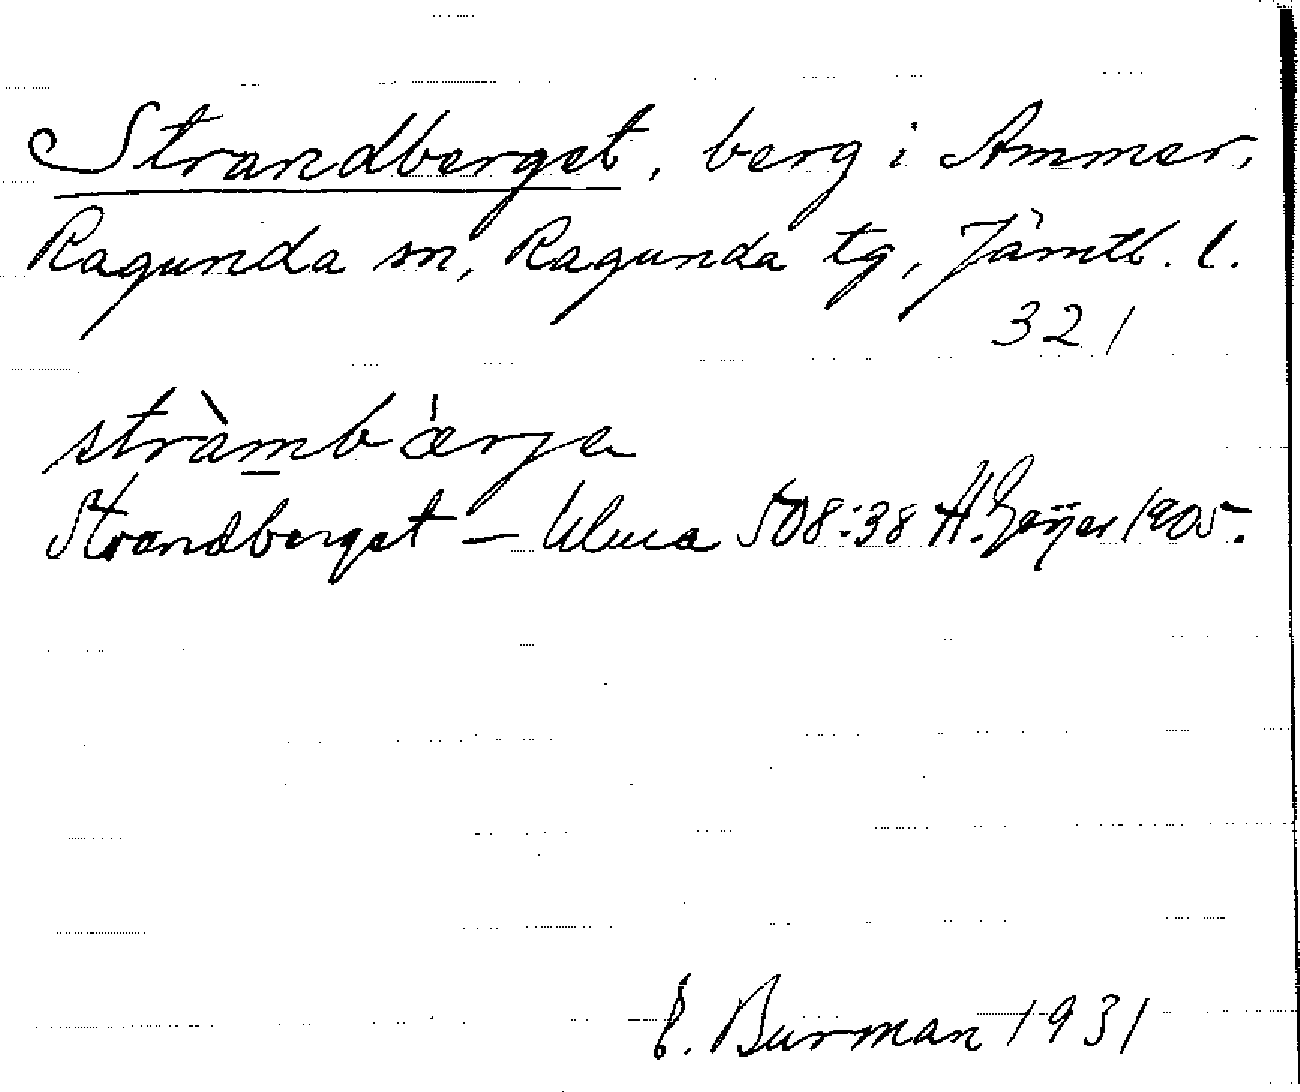 Strandberget, berg i Ammer,
Ragunda sn, Ragunda tg, Jämtl. l.
321
stràmbá̈rja
Strandberget – Ulma 508:38 H. Geijer 1905.
E. Burman 1931